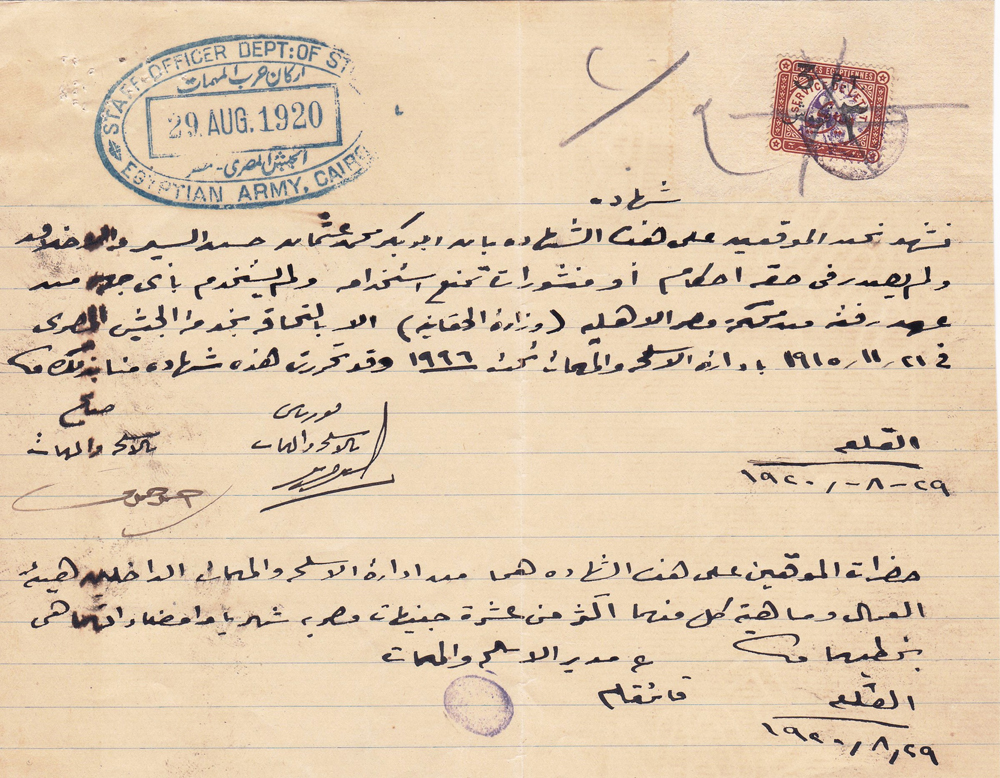 STAFF-OFFICER DEPT: OF ST
اركان حرب المهمات
29. AUG. 1920
الجيش المصرى - مصر
EGYPTIAN ARMY, CAIRO
شهاده
نشهد نحن الموقعين على هذه الشهاده بان ابو بكر محمد عثمان حسن السير والاخلاق
ولم يصدر فى حقه احكام أو منشورات تمنع استخدامه ولم يستخدم بأى جهه منذ
عهد رفته من محكمة مصر الاهليه (وزارة الحقانيه) الا بالتحاقه بخدمة الجيش المصرى
فى ٢١/ ١١/ ١٩١٥ بادارة الاسلحه والمهمات نمرة ١٩٩٦ وقد تحررت هذه شهاده منا بذلك
بالاسلحه والمهمات
صانع
بالاسلحه والمهمات
القلعه
٢٩-٨-١٩٢٠
حضرات الموقعين على هذه الشهاده هما من ادارة الاسلحه والمهمات الداخلين هيئة
العمال وماهية كل منهما اكثر من عشرة جنيهات مصريه شهريا وامضاءاتهما هى
بخطيهما
ع مدير الاسلحه والمهمات
قائمقام
القلعه
٢٩/٨/١٩٢٠